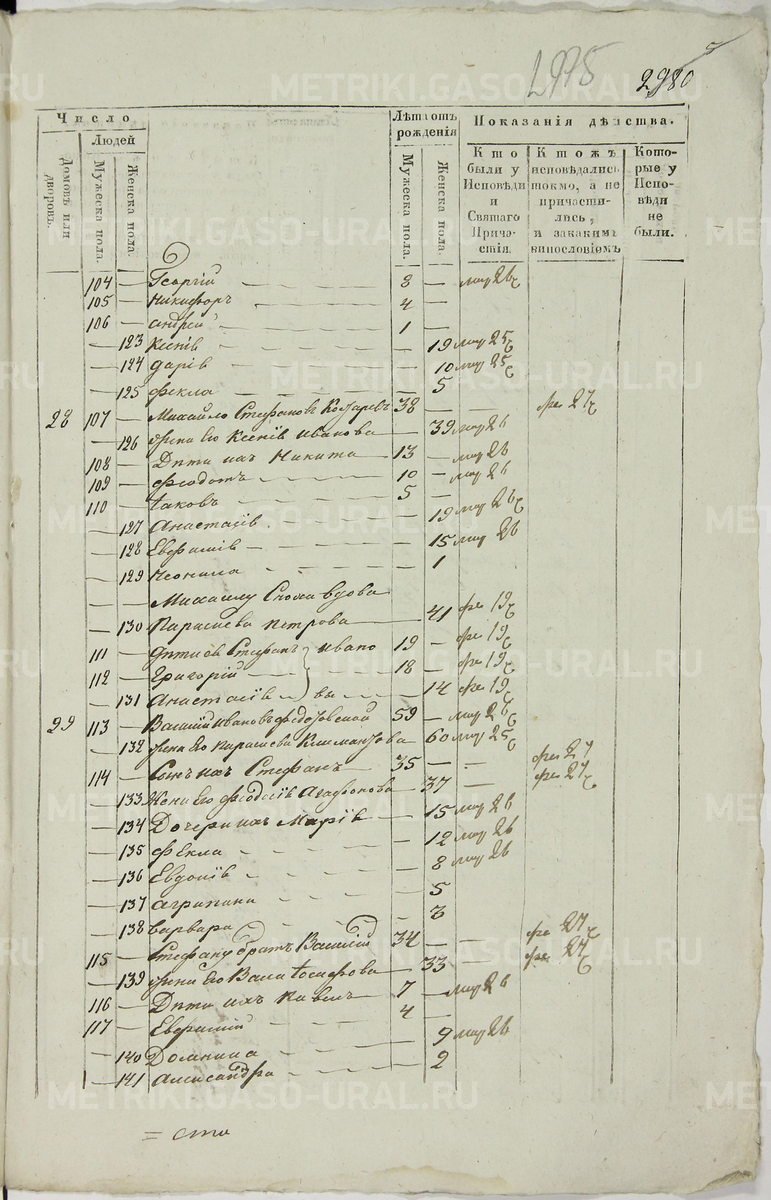 2975
2980
Число
Людей
Домовъ или дворовъ.
Мужеска пола.
Женска пола.
Лѣта отъ рожденія
Мужеска пола.
Женска пола.
Показанія дѣйства.
Кто были у Исповѣди и Святаго Прича- стія.
Ктожъ исповѣдались токмо, а не причасти- лись, и закакимъ винословіемъ
Кото- рые у Испо- вѣди не были.
104 — Георгій — 8 — мар 26
105 — Никифоръ — 4 —
106 — Андрей — 1 —
— 123 Ксенія — — 19 мар 25
— 124 Дарія — — 10 мар 25
— 125 Фекла — — 5
28 107 — Михайло Стефановъ 38 — — фев 27
— 126 жена его Ксенія Иванова — 39 мар 26
108 — Дѣти ихъ Никита 13 — мар 26
109 — Феодотъ — 10 — мар 26
110 — Іаковъ — 5 —
— 127 Анастасія — 19 мар 26
— 128 Евфимія — — 15 мар 26
— 129 Неонила — — 1
— — Михаилу Сноха вдова
— 130 Параскева Петрова — 41 фев 19
111 — Дѣти ея Стефанъ Ивано 19 — фев 19
112 — Григорій — 18 — фев 19
— 131 Анастасія — вы — 14 фев 19
29 113 — Василій Ивановъ 59 — мар 26
— 132 жена его Параскева 60 мар 25
114 — Сынъ ихъ Стефанъ 35 — — фев 27
— 133 Жена его Феодосія Агафонова — 37 — фев 27
— 134 Дочери ихъ Марія — 15 мар 26
— 135 Фекла — — 12 мар 26
— 136 Евдокія — — 8 мар 26
— 137 Агрипина — — 5
— 138 Варвара — — 3
115 — Стефану братъ Василій 34 — — фев 27
— 139 жена его Васса — 33 — фев 27
116 — Дѣти ихъ Павелъ 7 — мар 26
117 — Евфимій 4 —
— 140 Домнина — — 9 мар 26
— 141 Александра — — 2
METRIKI.GASO-URAL.RU